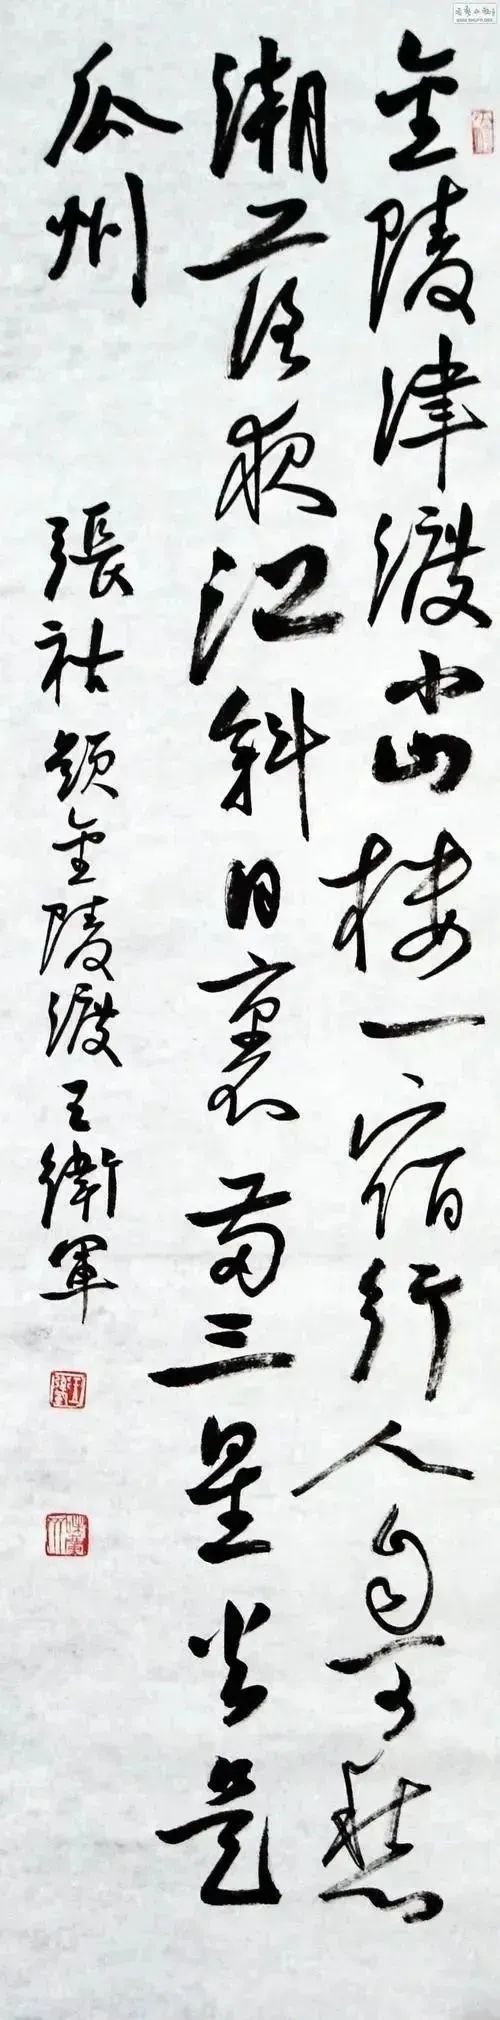 金陵津渡小山樓一宿行人自可愁
潮落夜江斜月裏兩三星火是
瓜州
張祜題金陵渡王衛軍